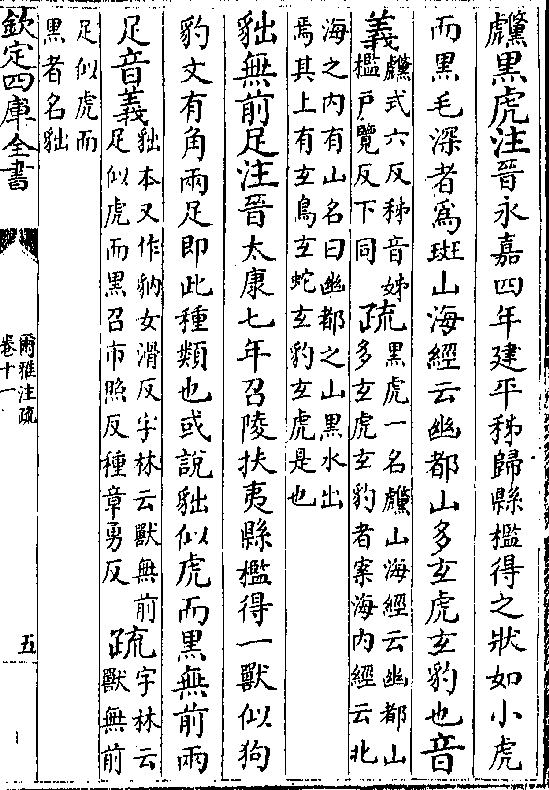 虪黑虎注晉永嘉四年建平秭歸縣檻得之狀如小虎
而黑毛深者為斑山海經云幽都山多玄虎玄豹也音
義虪式六反秭音姊
檻戶覽反下同
疏黑虎一名虪山海經云幽都山
多玄虎玄豹者案海內經云北
海之內有山名曰幽都之山黑水出
焉其上有玄鳥玄蛇玄豹玄虎是也
貀無前足注晉太康七年召陵扶夷縣檻得一獸似狗
豹文有角兩足即此種類也或說貀似虎而黑無前兩
足音義貀本又作豽女滑反字林云獸無前
足似虎而黑召市照反種章勇反
疏字林云
獸無前
足似虎而
黑者名貀
欽定四庫全書
爾雅注疏
卷十一
五